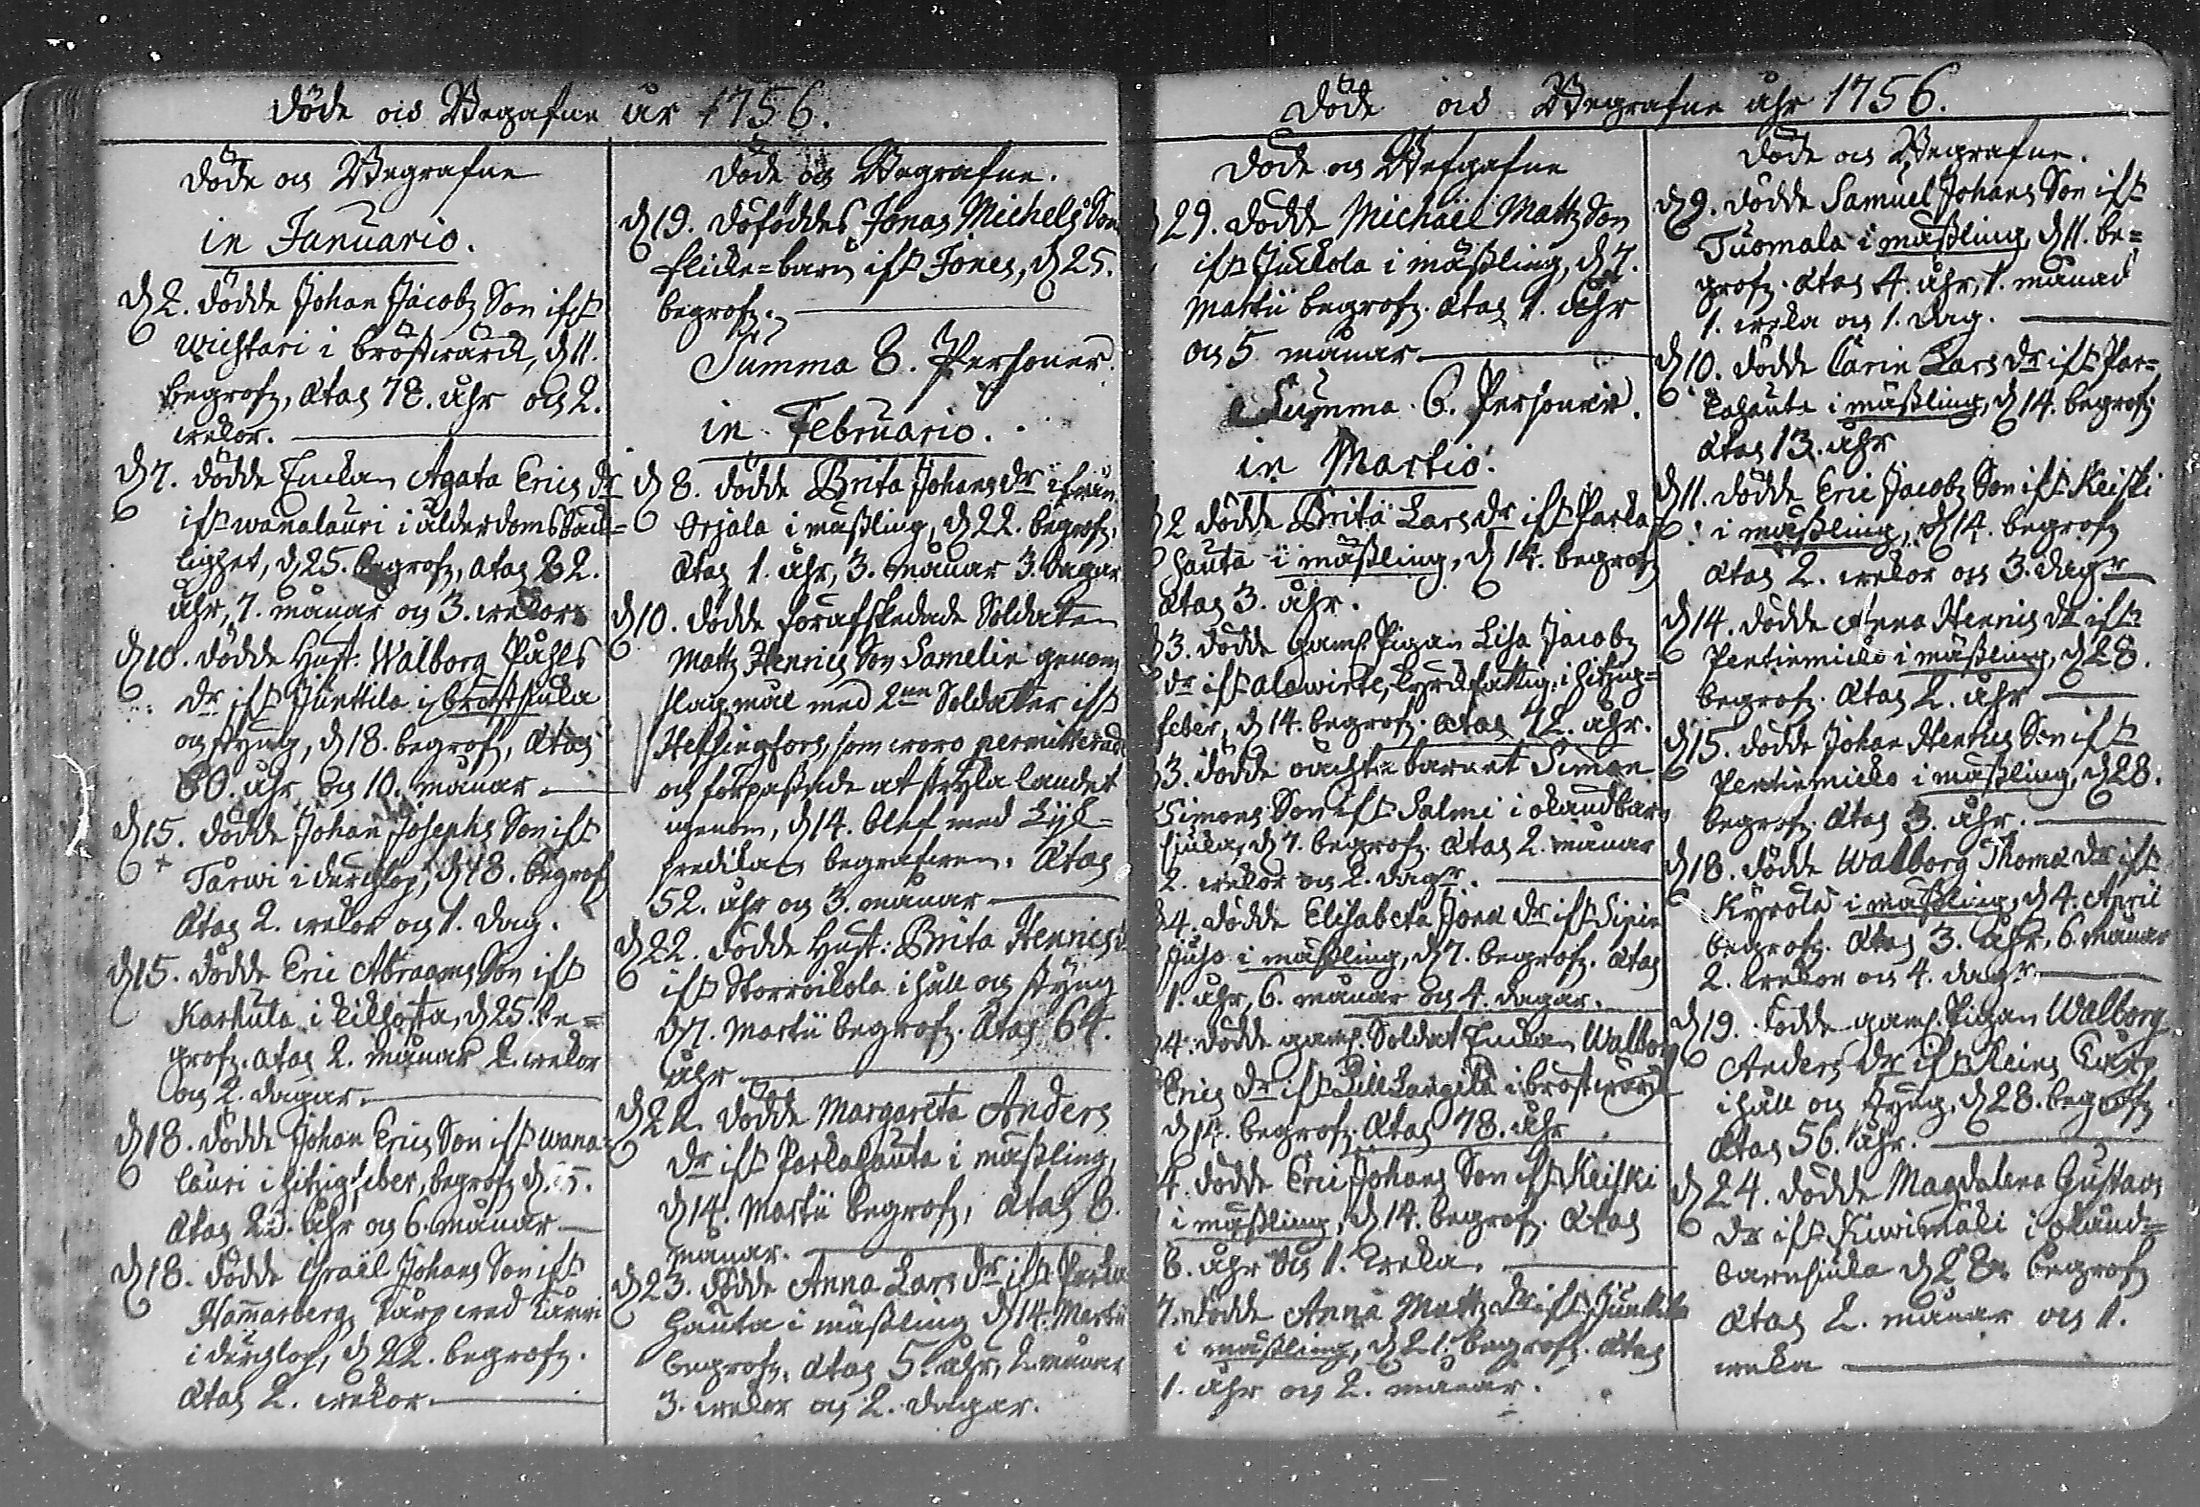 Döde och Begrafne år 1756.
Döde och Begrafne
in Januario.
d. 2. Dödde Johan Jacobs Son ifr.
Wichtari i bröstwärck, d. 11.
begrofs, Ætas 78. åhr och 2.
wekor.
d. 7. Dödde Enckan Agata Erics Dr
ifr. Wanalauri i ålderdoms Sauk-
lighet, d. 25. begrofs, Ætas 82.
åhr, 7. månar och 3. wekor
d. 10. Dödde Hust: Walborg Påhls
Dr ifr. Junttila i bröstsiuka
och styng, d. 18. begrofs, Ætas
60. åhr och 10. månar
d. 15. Dödde Johan Josephs Son ifr.
Tarwi i durchlop, d. 18. begrofs
Ætas 2. wekor och 1. dag.
d. 15. Dödde Eric Abraams Son ifr.
Karhula i kikhosta, d. 25. be-
grofs. Ætas 2. månar 2. wekor
och 2. dagar.
d. 18. Dödde Johan Erics Son ifr. Wana-
lauri i hitzigfeber, begrofs d. 25.
Ætas 23. åhr och 6. månar
d. 18. Dödde Israël Johans Son ifr.
Hammarbergs
i durchlop, d. 22. begrofs.
Ætas 2. wekor.
Döde och Begrafne.
d. 19. döföddes Jonas Michels Son
flicke-barn ifr. Jones, d. 25.
begrofs.
Summa 8. Personer.
in Februario.
d. 8. Dödde Brita Johans Dr ifrån
Orjala i mäßling, d. 22. begrofs,
Ætas 1. åhr, 3. månar 3. dagar
d. 10. Dödde förafskedade Soldaten
Matts Henrics Son Samelin genom
slagsmål med 2ne Soldater ifr.
Helsingfors, som woro permitterade
och förpaßade at stryka landet
igenom, d. 14. blef med Lijk-
predikan begrafwen. Ætas
52. åhr och 3. månar
d. 22. Dödde Hust: Brita Henrics Dr
ifr. Storroikola i håll och styng
d. 7. Martii begrofs. Ætas 64.
åhr
d. 22. Dödde Margareta Anders
Dr ifr. Parkahauta i mäßling,
d. 14. Martii begrofs, Ætas 8.
månar.
d. 23. Dödde Anna Lars Dr ifr. Parka
hauta i mäßling d. 14. Martii
begrofs, Ætas 5. åhr, 2. månar
3. wekor och 2. dagar.
Döde och Begrafne åhr 1756.
Döde och Befgafne
29. Dödde Michaël Matts Son
ifr. Juckola i mäßling, d. 7.
Martii begrofs. Ætas 1. åhr
och 5 månar
Summa 6. Personer.
in Martio.
2 Dödde Brita Lars Dr ifr. Parka
hauta i mäßling, d. 14. begrofs
Ætas 3. åhr.
3. Dödde gaml. Pigan Lisa Jacobs
Dr ifr. Alawirte, kyrckfattig, i hitzig-
feber, d. 14. begrofs. Ætas 72. åhr.
3. Dödde oächta barnet Simon
Simons Son ifr. Salmi i okandbarn
sjuka, d. 7. begrofs. Ætas 2. månar
2. wekor och 2. dagr.
4. Dödde Elisabeta Jöns Dr ifr. Sipin
Juho i mäßling, d. 7. begrofs. Ætas
1. åhr, 6. månar och 4. dagar.
4. Dödde gaml. Soldat Enckan Walborg
Erics Dr ifr. i bröstwärck
d. 14. begrofs. Ætas 78. åhr
4. Dödde Eric Johans Son ifr. Keiski
i mäßling, d. 14. begrofs. Ætas
8. åhr och 1. weka.
7. Dödde Anna Matts Dr ifr. Junttila
i mäßling, d. 21. begrofs. Ætas
1. åhr och 2. månar.
Döde och Begrafne.
d. 9. Dödde Samuel Johans Son ifr.
Tuomala i mäßling, d. 11. be-
grofs. Ætas 4. åhr, 1. månad
1. weka och 1. dag.
d. 10. Dödde Carin Lars Dr ifr. Par-
kahauta i mäßling, d. 14. begrofs
Ætas 13. åhr
d. 11. Dödde Eric Jacobs Son ifr. Keiski
i mäßling, d. 14. begrofs
Ætas 2. wekor och 3. dagr
d. 14. Dödde Anna Henrics Dr ifr.
Pentinmicko i mäßling, d. 28.
begrofs. Ætas 2. åhr
d. 15. Dödde Johan Henrics Son ifr.
Pentinmicko i mäßling, d. 28.
begrofs. Ætas 3. åhr.
d. 18. Dödde Walborg Thomæ Dr ifr.
Kyrölä i mäßling, d. 4. April
begrofs. Ætas 3. åhr, 6. månar
2. wekor och 4. dagr.
d. 19. Dödde gaml. Pigan Walborg
Anders Dr ifr. Keins
i håll och styng, d. 28. begrofs.
Ætas 56. åhr.
d. 24. Dödde Magdalena Gustavs
Dr ifr. Kiwimäki i okänd-
barnsiuka d. 28. begrofs
Ætas 2. månar och 1.
weka